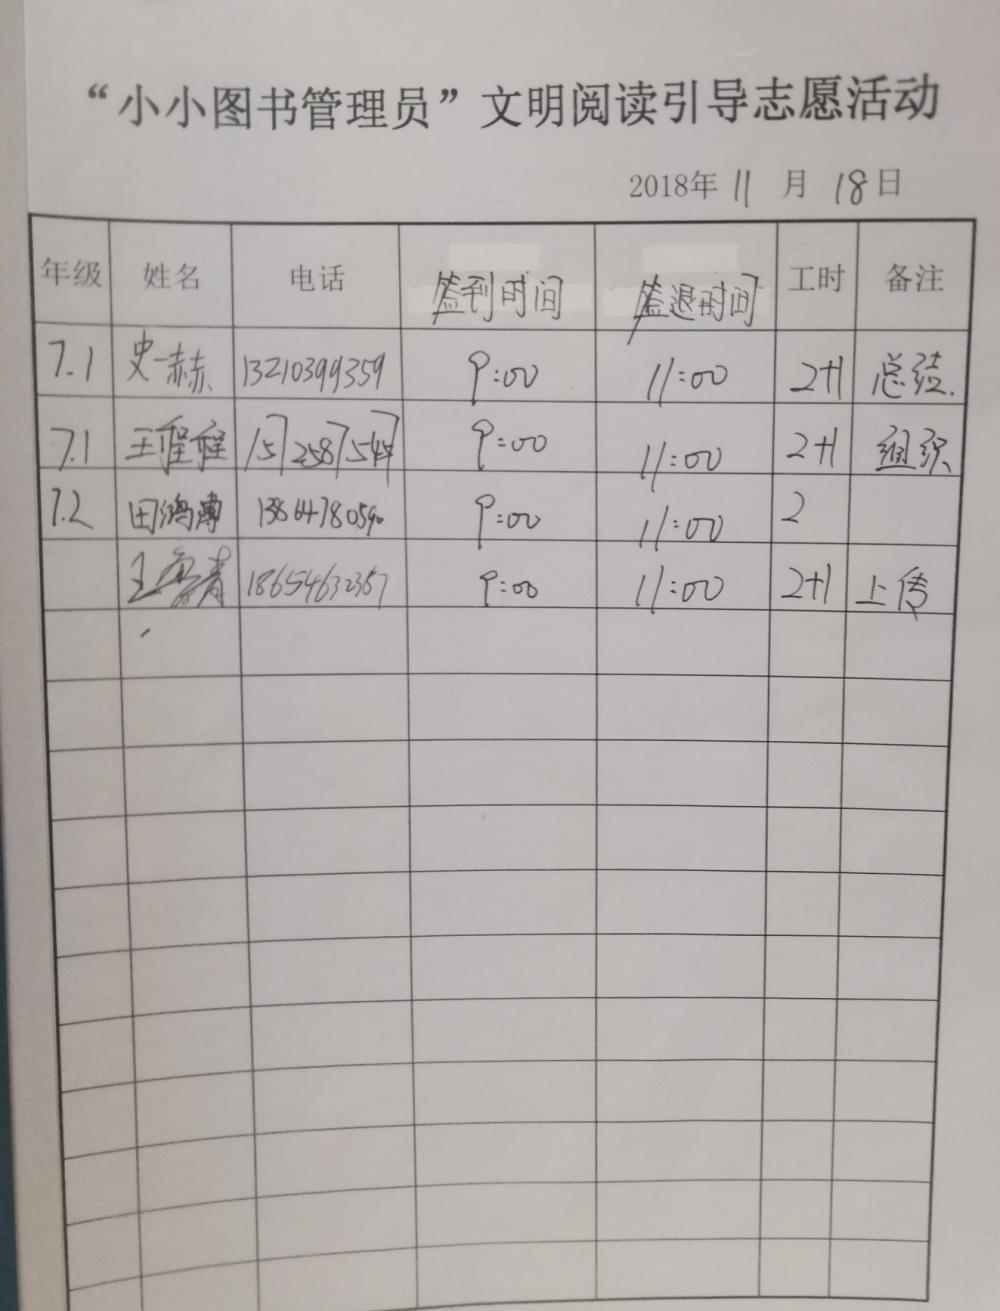 “小小图书管理员”文明阅读引导志愿活动
2018年 11 月 18日
年级 姓名 电话 签到时间 签退时间 工时 备注
7.1 史一赫 13210399359 9:00 11:00 2+1 总结.
7.1 王程程 15725875 9:00 11:00 2+1 组织
7.2 田鸿博 9:00 11:00 2
王 青 18654632357 9:00 11:00 2+1 上传